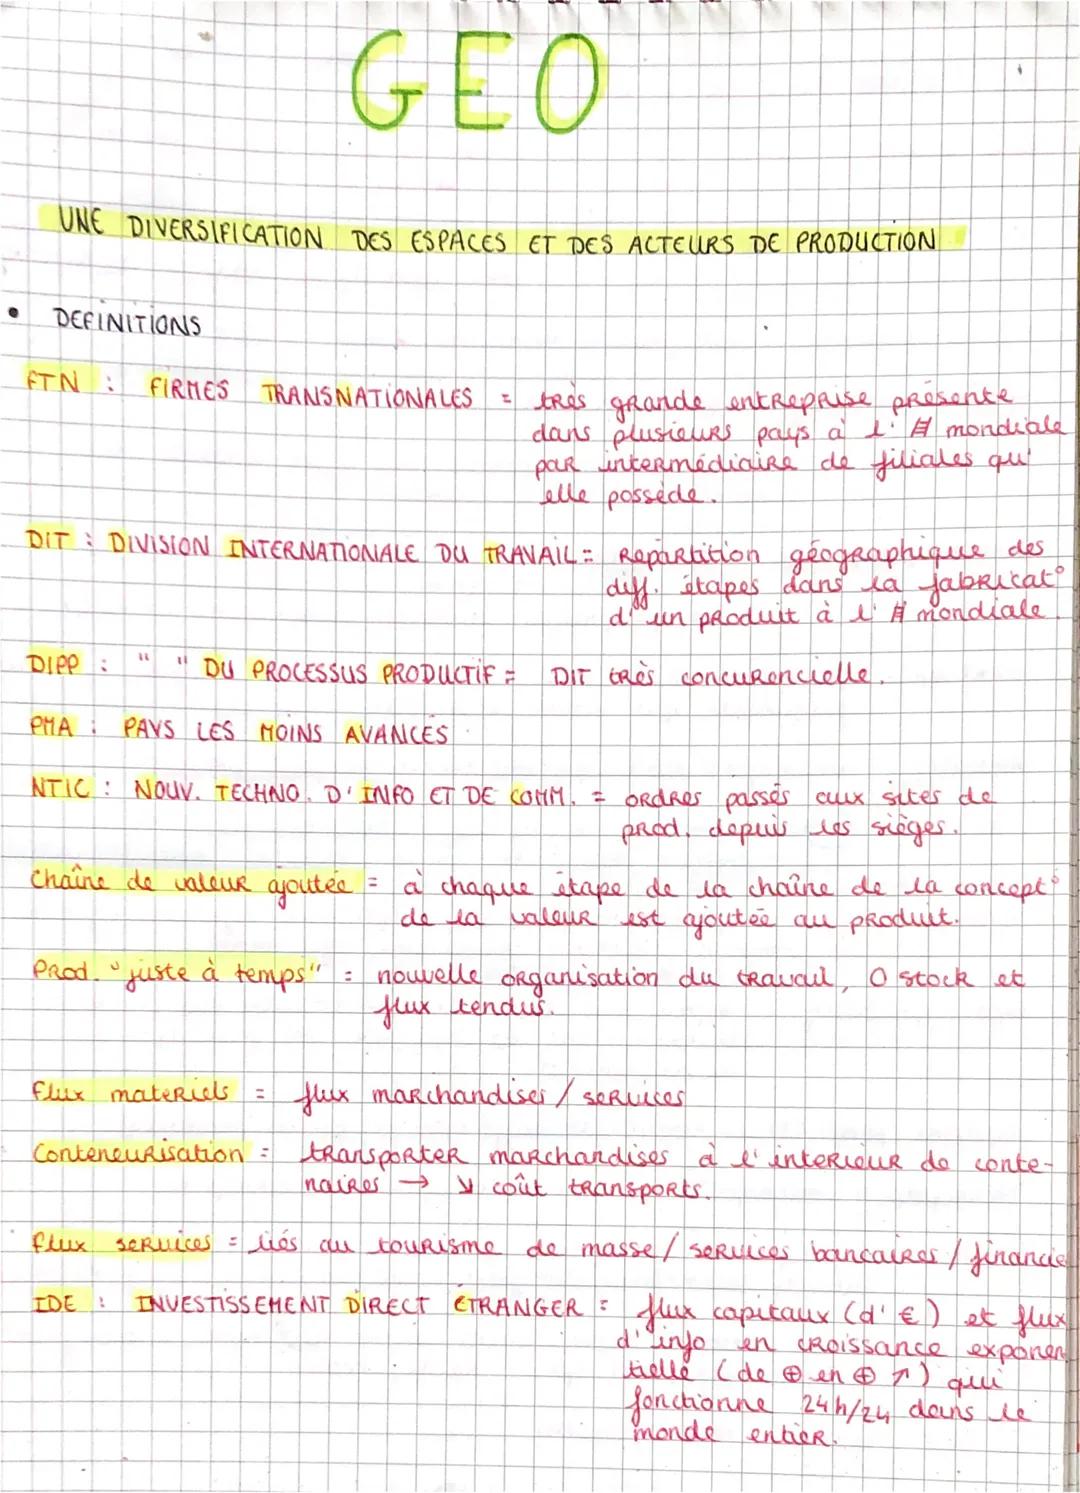 GEO
UNE DIVERSIFICATION DES ESPACES ET DES ACTEURS DE PRODUCTION
• DEFINITIONS
FTN : FIRMES TRANSNATIONALES = très grande entreprise présente
dans plusieurs pays à l' mondiale
par intermédiaire de filiales qu'
elle possède.
DIT : DIVISION INTERNATIONALE DU TRAVAIL = Répartition géographique des
diff. étapes dans la fabricat°
d'un produit à l' mondiale.
DIPP : " " DU PROCESSUS PRODUCTIF = DIT très concurencielle.
PMA : PAYS LES MOINS AVANCÉS
NTIC : NOUV. TECHNO. D'INFO ET DE COMM. = ordres passés aux sites de
prod. depuis les sièges.
Chaîne de valeur ajoutée = à chaque étape de la chaîne de la concept°
de la valeur est ajoutée au produit.
Prod. "juste à temps" = nouvelle organisation du travail, 0 stock et
flux tendus.
Flux materiels = flux marchandises / services
Conteneurisation = transporter marchandises à l'interieur de conte-
naires → ↘ coût transports.
Flux services = liés au tourisme de masse / services bancaires / financie
IDE : INVESTISSEMENT DIRECT ÉTRANGER = flux capitaux (d'€) et flux
d'info en croissance exponen
tielle (de ⊕ en ⊕ ↗) qui
fonctionne 24h/24 dans le
monde entier.